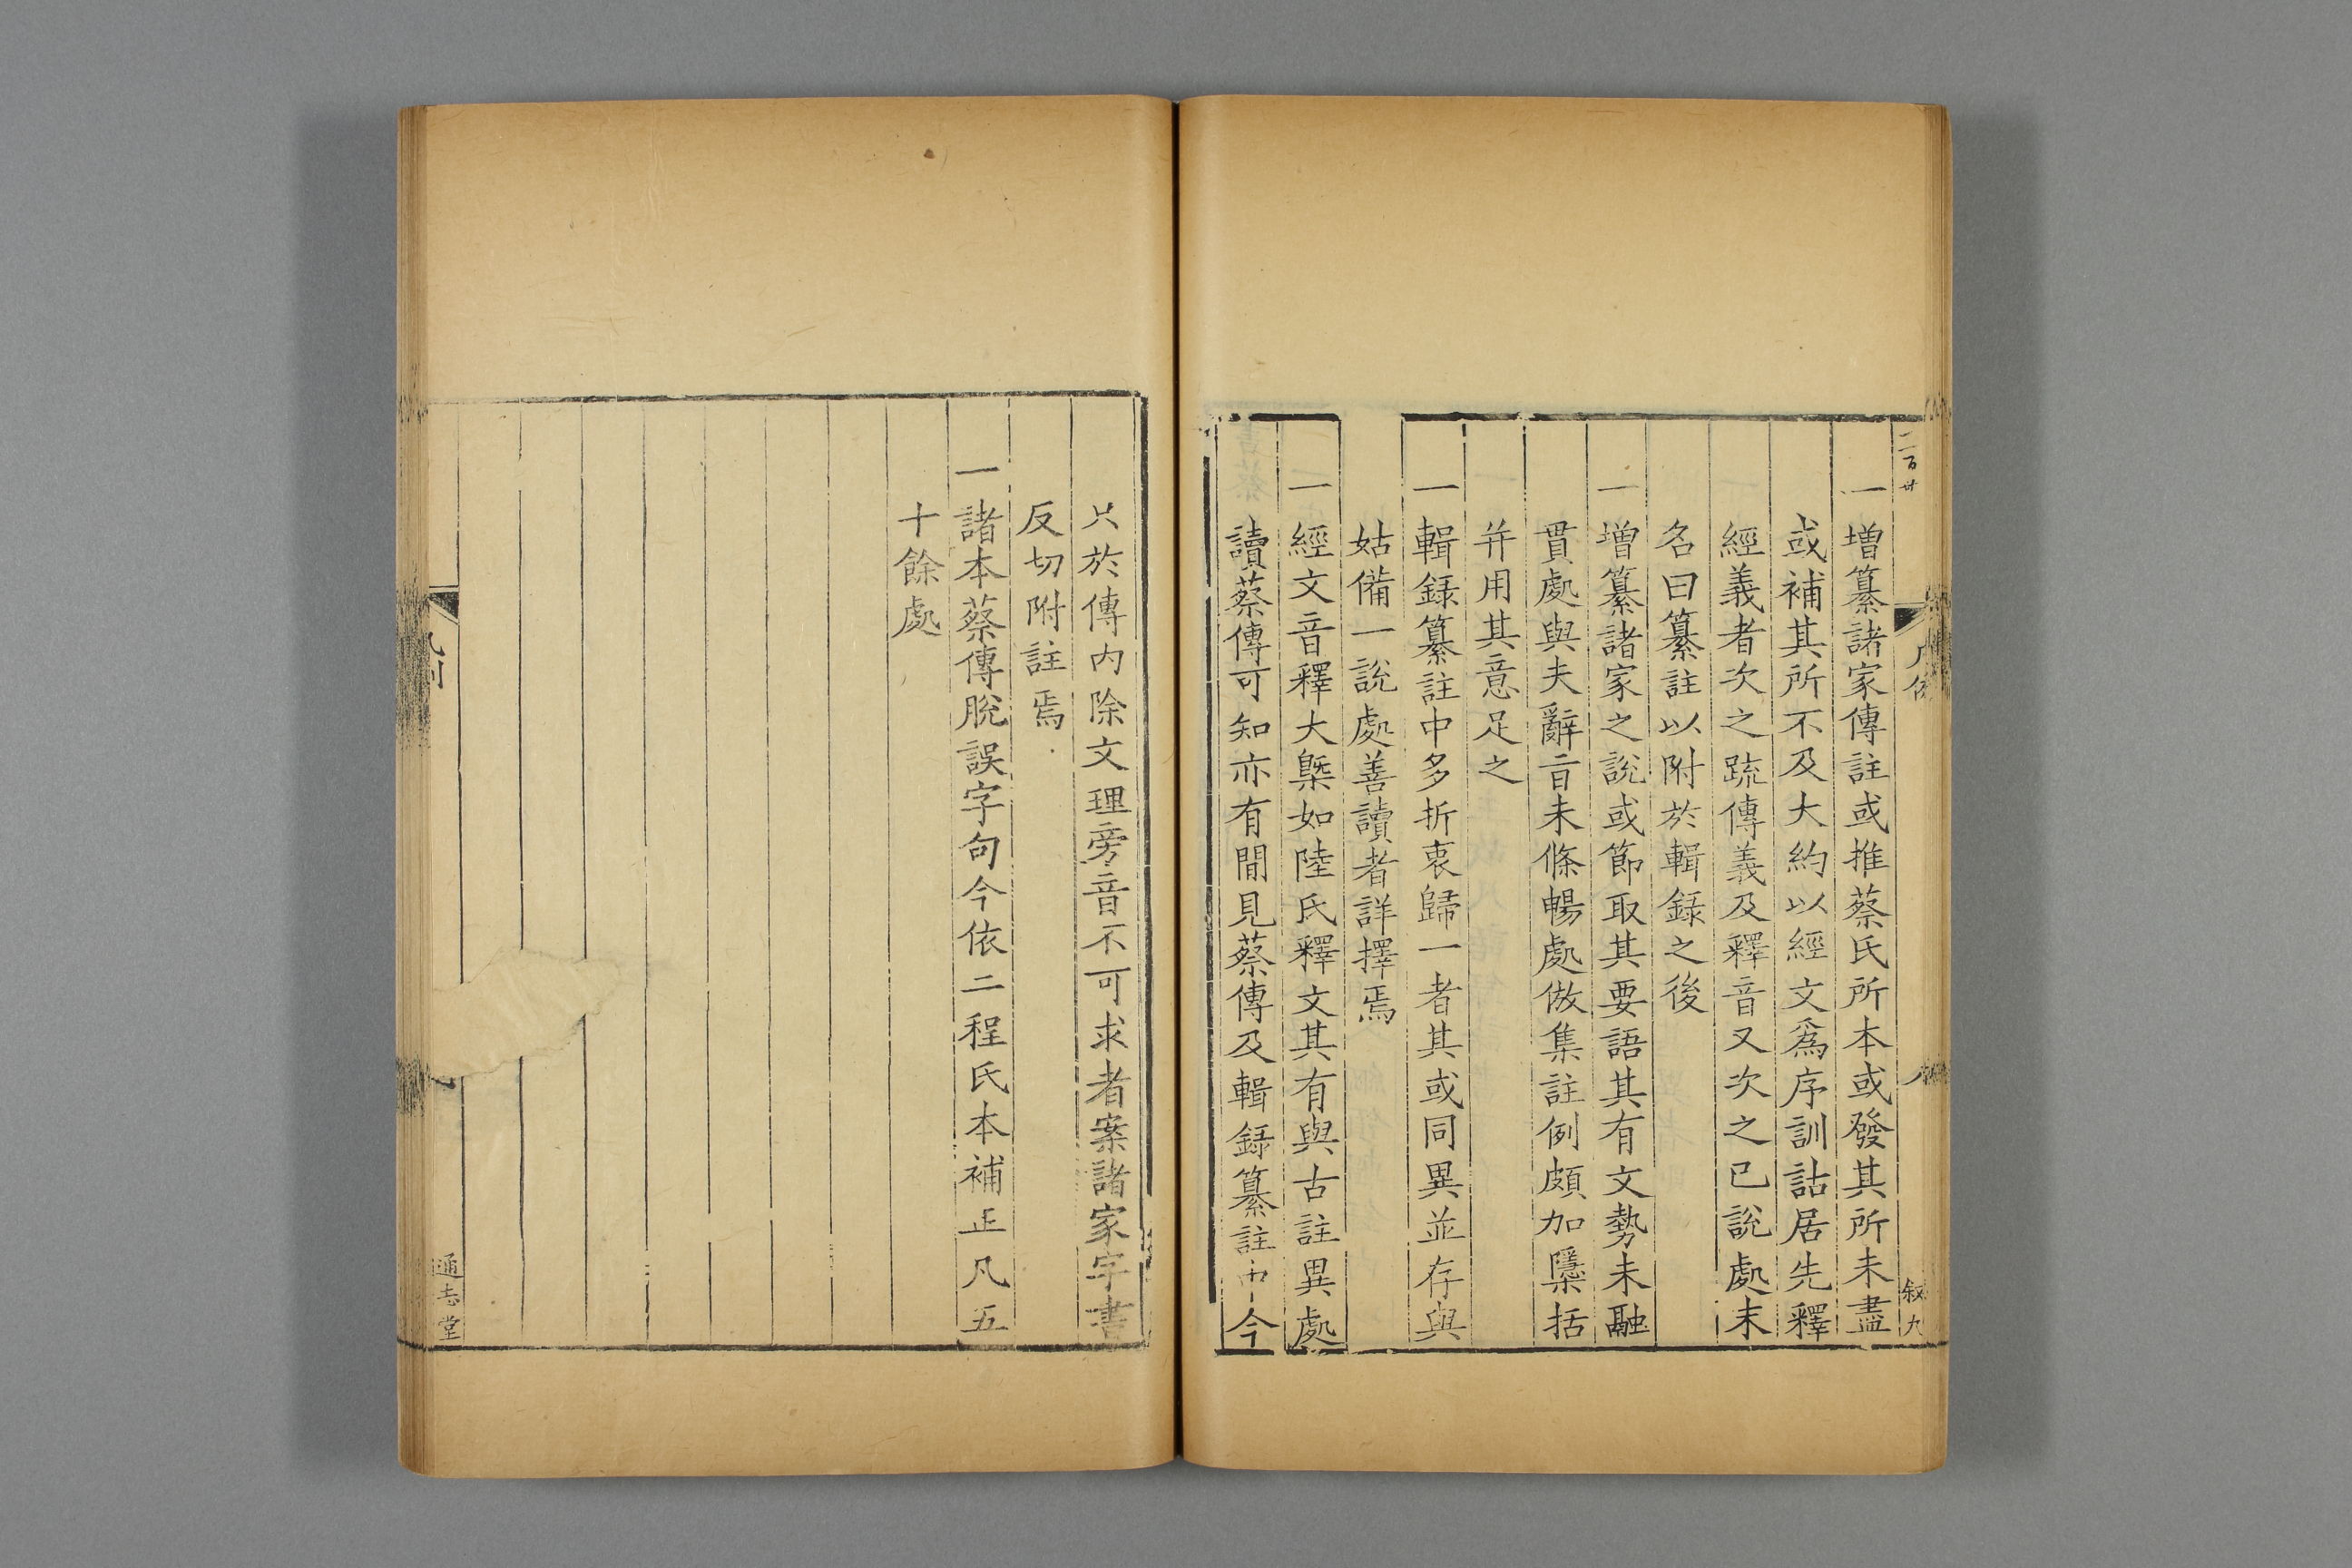 二百廿
叙九
一增纂諸家傳註或推蔡氏所本或發其所未盡
或補其所不及大約以經文爲序訓詁居先釋
經義者次之䟽傳義及釋音又次之已說處末
名曰纂註以附於輯録之後
一增纂諸家之說或節取其要語其有文勢未融
貫處與夫辭旨未條暢處倣集註例頗加隱括
并用其意足之
一輯録纂註中多折衷歸一者其或同異並存與
姑備一說處善讀者詳擇焉
一經文音釋大槩如陸氏釋文其有與古註異處
讀蔡傳可知亦有間見蔡傳及輯録纂註中今
只於傳内除文理旁音不可求者案諸家字書
反切附註焉
一諸本蔡傳脫誤字句今依二程氏本補正凡五
十餘處
通志堂